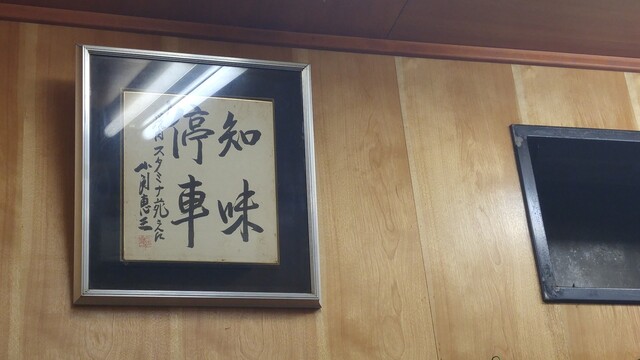 知味
停車
スタミナ苑さん江
小渕恵三